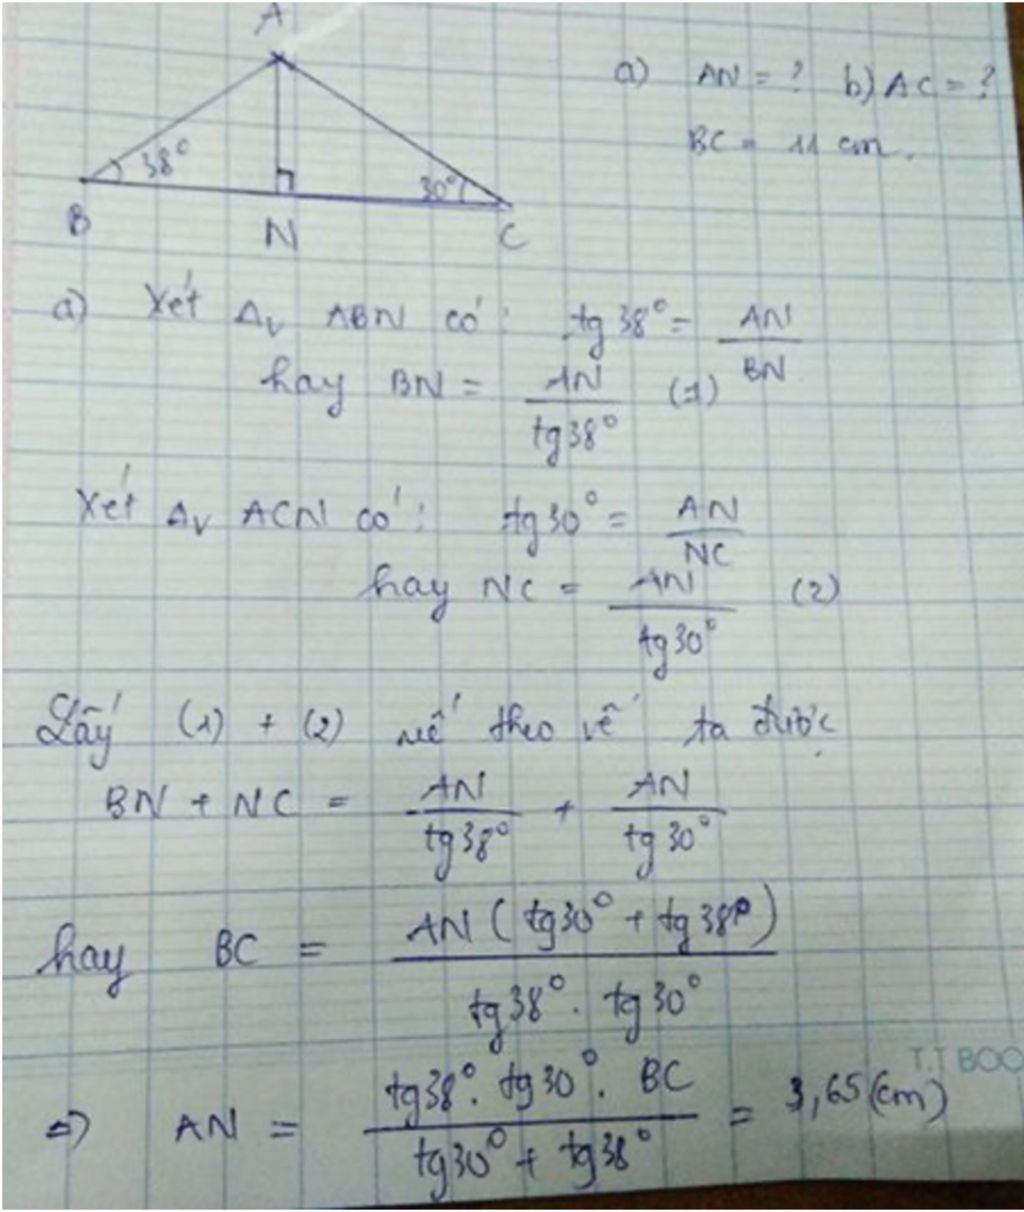 A
a) AN = ? b) AC = ?
BC = 11 cm.
38°
30°
B
N
C
a) Xét Δv ABN có: tg38° = AN / BN
hay BN = AN / tg38° (1)
Xét Δv ACN có: tg30° = AN / NC
hay NC = AN / tg30° (2)
Lấy (1) + (2) vế theo vế ta được
BN + NC = AN / tg38° + AN / tg30°
hay BC = AN (tg30° + tg38°) / tg38° . tg30°
=> AN = tg38° . tg30° . BC / tg30° + tg38° = 3,65 (cm)
T.T BOO